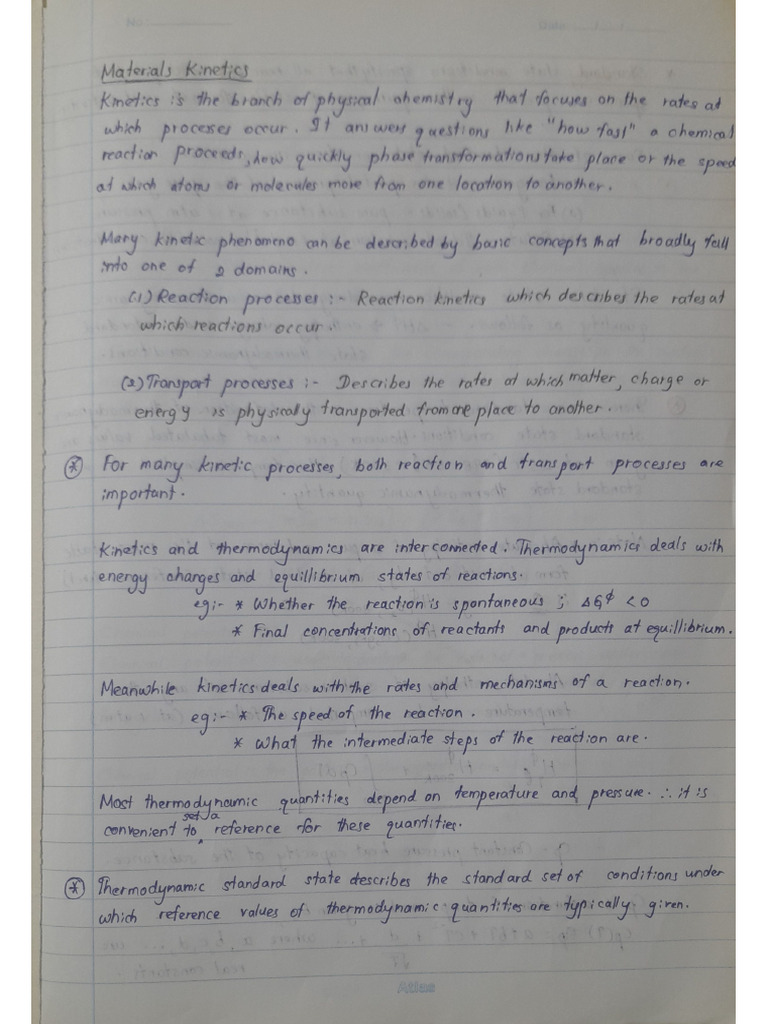 Materials Kinetics
Kinetics is the branch of physical chemistry that focuses on the rates at
which processes occur. It answers questions like "how fast" a chemical
reaction proceeds, how quickly phase transformations take place or the speed
at which atoms or molecules move from one location to another.
Many kinetic phenomeno can be described by basic concepts that broadly fall
into one of 2 domains.
(1) Reaction processes :- Reaction kinetics which describes the rates at
which reactions occur.
(2) Transport processes :- Describes the rates at which matter, charge or
energy is physically transported from one place to another.
* For many kinetic processes, both reaction and transport processes are
important.
Kinetics and thermodynamics are interconnected. Thermodynamics deals with
energy changes and equillibrium states of reactions.
eg:- * Whether the reaction is spontaneous ; ΔG° < 0
* Final concentrations of reactants and products at equillibrium.
Meanwhile kinetics deals with the rates and mechanisms of a reaction.
eg:- * The speed of the reaction.
* What the intermediate steps of the reaction are.
Most thermodynamic quantities depend on temperature and pressure. ∴ it is
convenient to set a reference for these quantities.
* Thermodynamic standard state describes the standard set of conditions under
which reference values of thermodynamic quantities are typically given.
Atlas